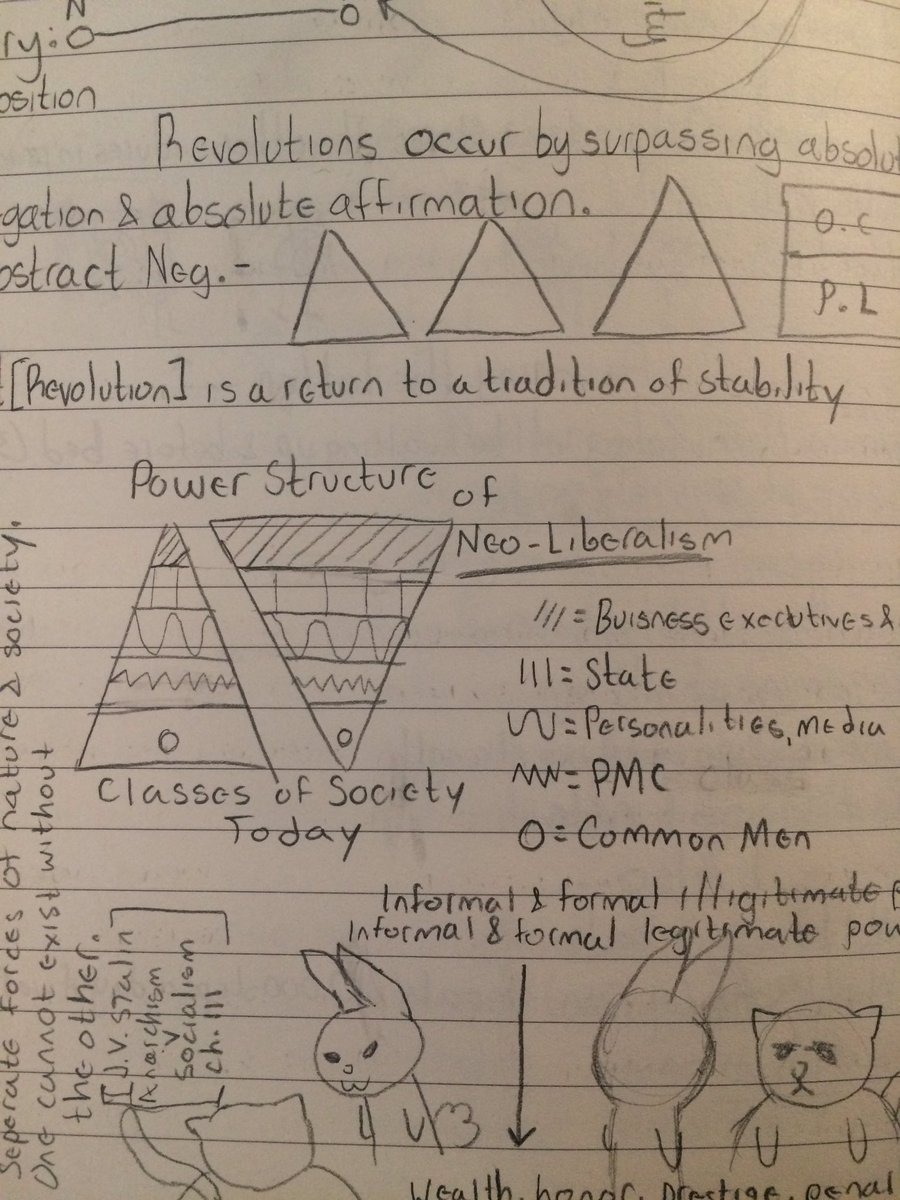 N
ry:O O
ity
osition
Revolutions occur by surpassing absolut
gation & absolute affirmation.
ostract Neg.-
O.C
P.L
[Revolution] is a return to a tradition of stability
Power Structure of
Neo-Liberalism
/// = Buisness executives &
||| = State
= Personalities, media
= PMC
O = Common Men
O O
Classes of Society
Today
Informal & formal illigitimate
Informal & formal legitimate pow
Seperate forces of nature & society.
One cannot exist without
the other.
[J.V. Stalin
Anarchism
v
Socialism
ch. III
Wealth, honor, prestige, penal